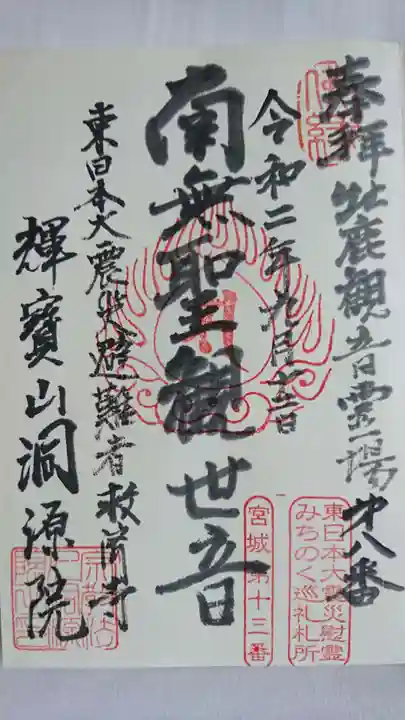 奉拝 牡鹿観音霊場 第八番
令和二年九月
南無聖観世音
東日本大震災避難者救済寺
輝寶山洞源院
東日本大震災慰霊
みちのく巡礼札所
宮城第十三番